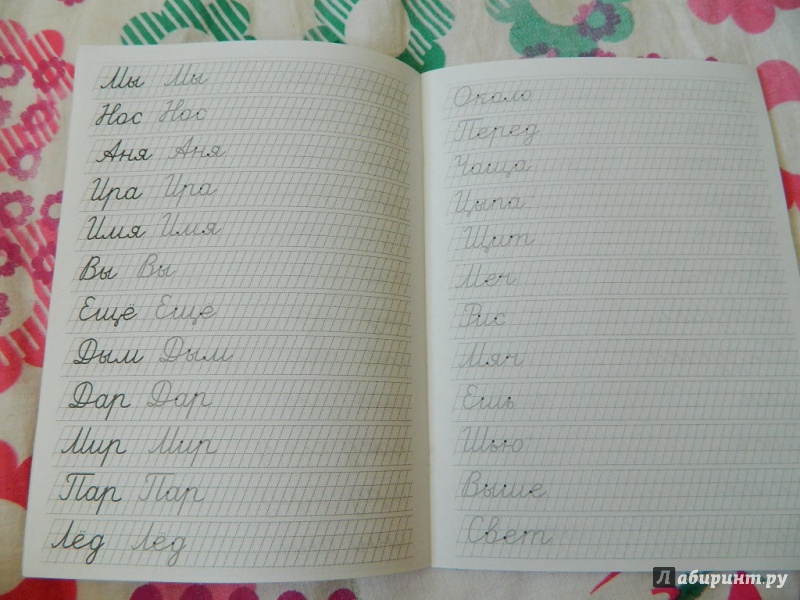 Мы Мы
Нос Нос
Аня Аня
Ира Ира
Имя Имя
Вы Вы
Ещё Ещё
Дым Дым
Дар Дар
Мир Мир
Пар Пар
Лёд Лёд
Около
Перед
Чаща
Цыпа
Щит
Меч
Рис
Мяч
Ешь
Шью
Выше
Свет
Лабиринт.ру